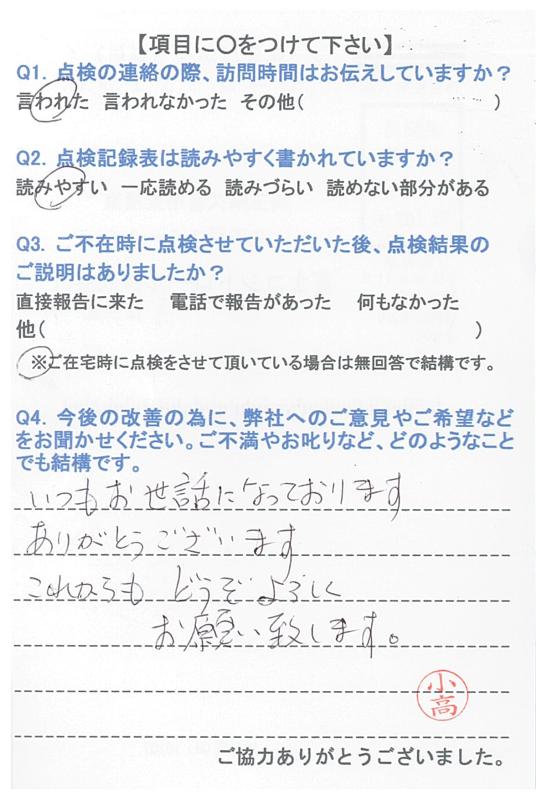 【項目に〇をつけて下さい】
Q1. 点検の連絡の際、訪問時間はお伝えしていますか？
言われた 言われなかった その他( )
Q2. 点検記録表は読みやすく書かれていますか？
読みやすい 一応読める 読みづらい 読めない部分がある
Q3. ご不在時に点検させていただいた後、点検結果の
ご説明はありましたか？
直接報告に来た 電話で報告があった 何もなかった
他( )
※ご在宅時に点検をさせて頂いている場合は無回答で結構です。
Q4. 今後の改善の為に、弊社へのご意見やご希望など
をお聞かせください。ご不満やお叱りなど、どのようなこと
でも結構です。
いつもお世話になっております
ありがとうございます
これからも どうぞよろしく
お願い致します。
小高
ご協力ありがとうございました。